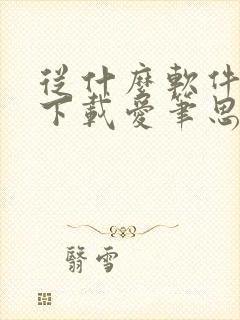 從什麼軟件
下載愛筆思
翳雪